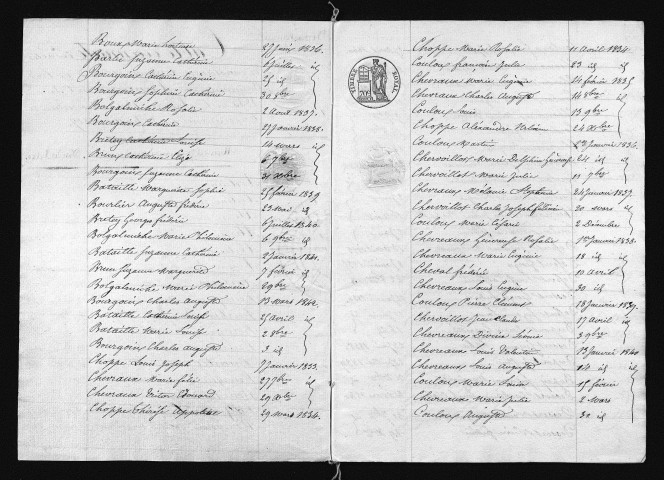 Roux Marie 27 Juin 1836.
Barlié Suzanne Catherine 6 Juillet id
Bourgoin Catherine Eugénie 25 id
Bourgoin Joséphine Catherine 30 8bre
Bolgaluniche Rosalie 2 Aout 1837.
Bourgoin Catherine 27 Janvier 1838.
Bretey Catherine Louise 14 mars id
Brun Catherine Elize 6 7bre
Bourgoin Suzanne Catherine 31 Xbre
Bataille Marguerite Sophie 25 fevrier 1839
Bourlier Auguste frédéric 23 Mai id
Bretey Georges frédéric 6 Juillet 1840.
Bolgaluniche Marie Philomène 6 9bre id
Bataille Suzanne Catherine 2 Janvier 1841.
Brun Suzanne Marguerite 7 fevrier id
Bolgaluniche Marie Philomène 29bre
Bourgoin Charles Auguste 13 Mars 1842.
Bataille Catherine Louise 25 Avril id
Bataille Marie Louise 2 8bre
Bourgoin Charles Auguste 3 id
Choppe Louis Joseph 7 Janvier 1833.
Chevraux Marie Julie 27 7bre id
Chevraux Victor Edouard 29 Xbre
Choppe Thérèse Appoline 29 Mars 1834.
TIMBRE ROYAL
Choppe Marie Rosalie 11 Avril 1834.
Coulon francois Jules 23 id id
Chevraux Marie Eugénie 11 fevrier 1835
Chevraux Charles Auguste 14 8bre
Coulon Louis 13 9bre id
Choppe Alexandre 24 Xbre
Coulon Martin Janvier 1836.
Chervaillot Marie Delphine 24 id id
Chervaillot Marie Julie 11 7bre
Chevraux Mélanie Stéphanie 24 Janvier 1837.
Chervaillot Charles Joseph 20 Mars id
Coulon Marie Césarie 2 Décembre
Chevreaux Génereuse Rosalie 1er Janvier 1838.
Chevreaux Marie Eugénie 18 id
Cheval frédéric 10 Avril id
Chevreaux Louis Eugène 30 id
Coulon Pierre Clément 18 Janvier 1839.
Chervaillot Jean Claude 17 Avril id
Chevreaux Désirée Léonie 3 9bre
Chevreaux Louis Valentin 13 Janvier 1840
Chevreaux Louis Auguste 14 id id
Coulon Marie Louise 15 fevrier
Chevreaux Marie Julie 2 Mars
Coulon Auguste 30 id